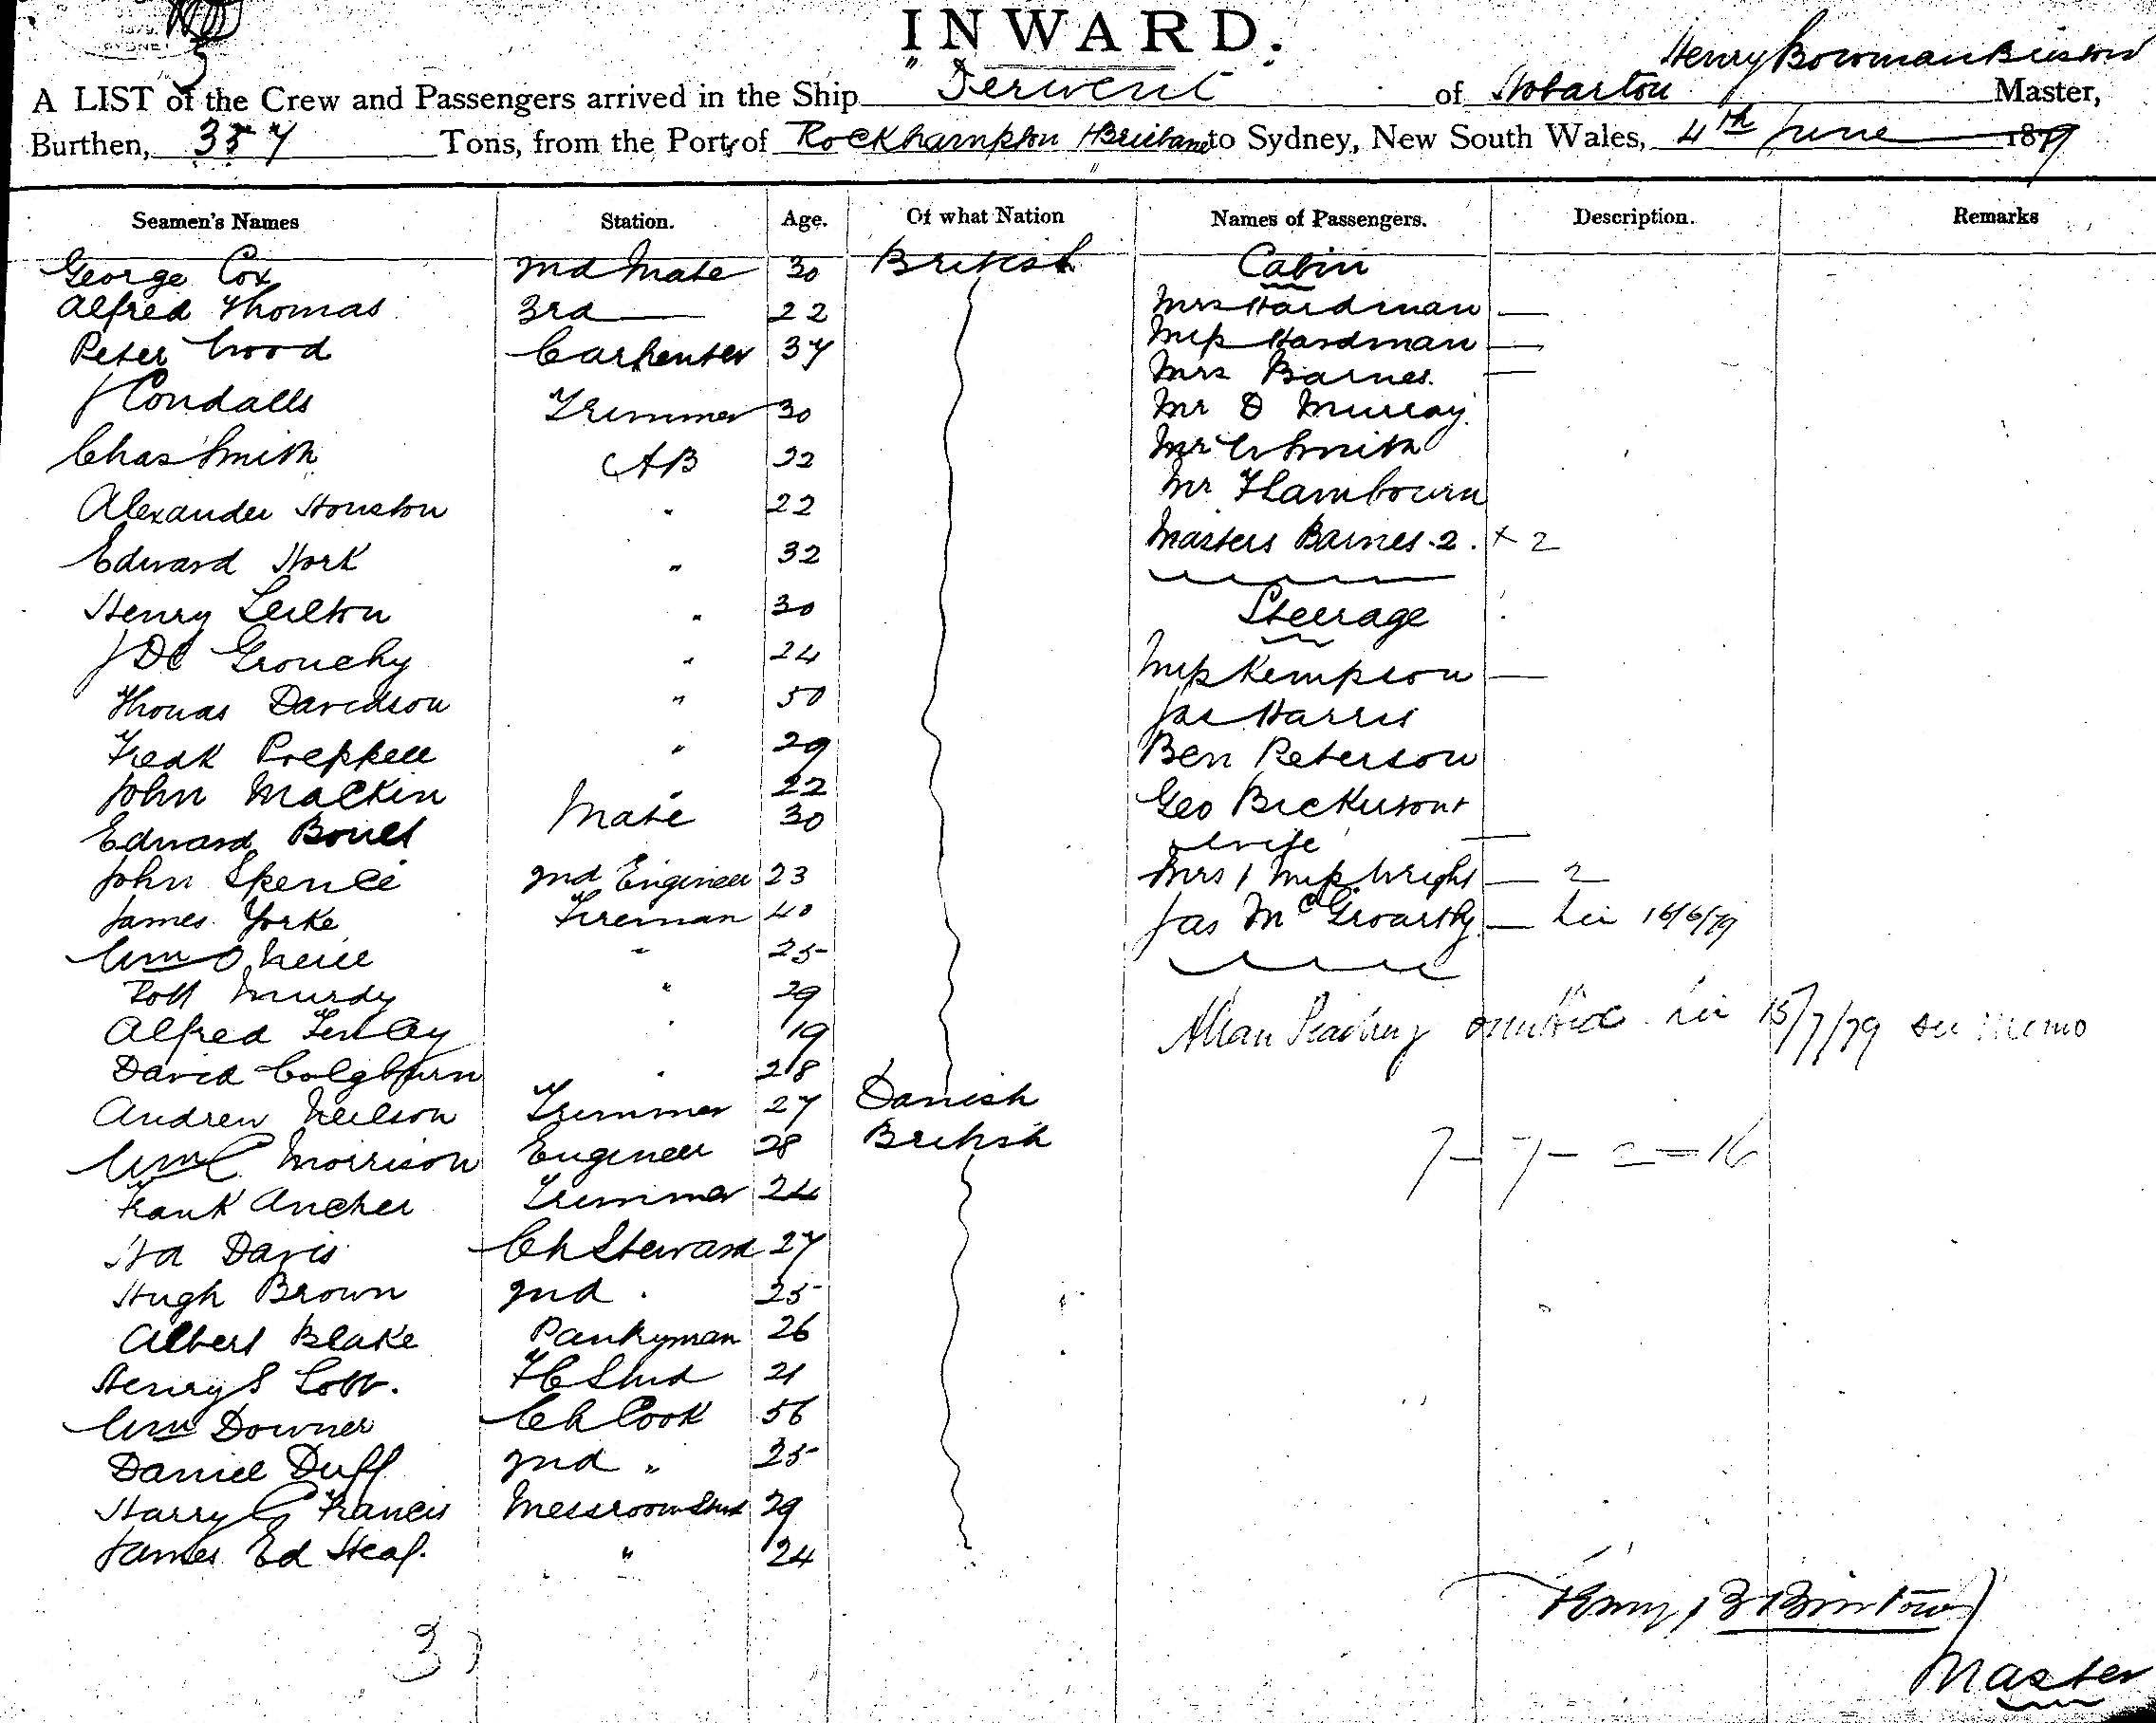 INWARD.
Henry Bowman
A LIST of the Crew and Passengers arrived in the Ship "Derwent" of Hobarton Master,
Burthen, 357 Tons, from the Ports of Rockhampton + Brisbane to Sydney, New South Wales, 4th June 1879
Seamen's Names Station. Age. Of what Nation Names of Passengers. Description. Remarks
George Cox 2nd Mate 30 British Cabin
Alfred Thomas 3rd — 22 Mrs Hardman —
Peter Wood Carpenter 37 Miss Hardman —
Mrs Barnes —
J Condalls Trimmer 30 Mr D Murray
Chas Smith AB 22 Mr W Smith
Alexander Houston " 22 Mr Flambourn
Edward Hork " 32 Masters Barnes. 2. + 2
Henry " 30 Steerage
J De Grouchy " 24 Miss Kempson —
Thomas Davidson " 50 Jas Harris
Fredk " 29 Ben Peterson
John Mackin " 22 Geo
Edward Mate 30 wife —
John Spence 2nd Engineer 23 Mrs & Miss Wright — 2
James Yorke Fireman 40 Jas — 16/6/79
Wm O Neill " 25
Robt Murdy " 29
Alfred Finlay " 19 Allan omitted 15/7/79 see memo
David " 28
Andrew Neilson Trimmer 27 Danish
Wm C Morrison Engineer 28 British 7 – 7 – 2 = 16
Frank Archer Trimmer 24
Hd Davis Ch Steward 27
Hugh Brown 2nd " 25
Albert Blake Pantryman 26
Henry S Lobb. F C Stwd 21
Wm Downer Ch Cook 56
Daniel Duff 2nd " 25
Harry G Francis Messroom Stwd 29
James Ed Heaf. " 24
Henry B
Master